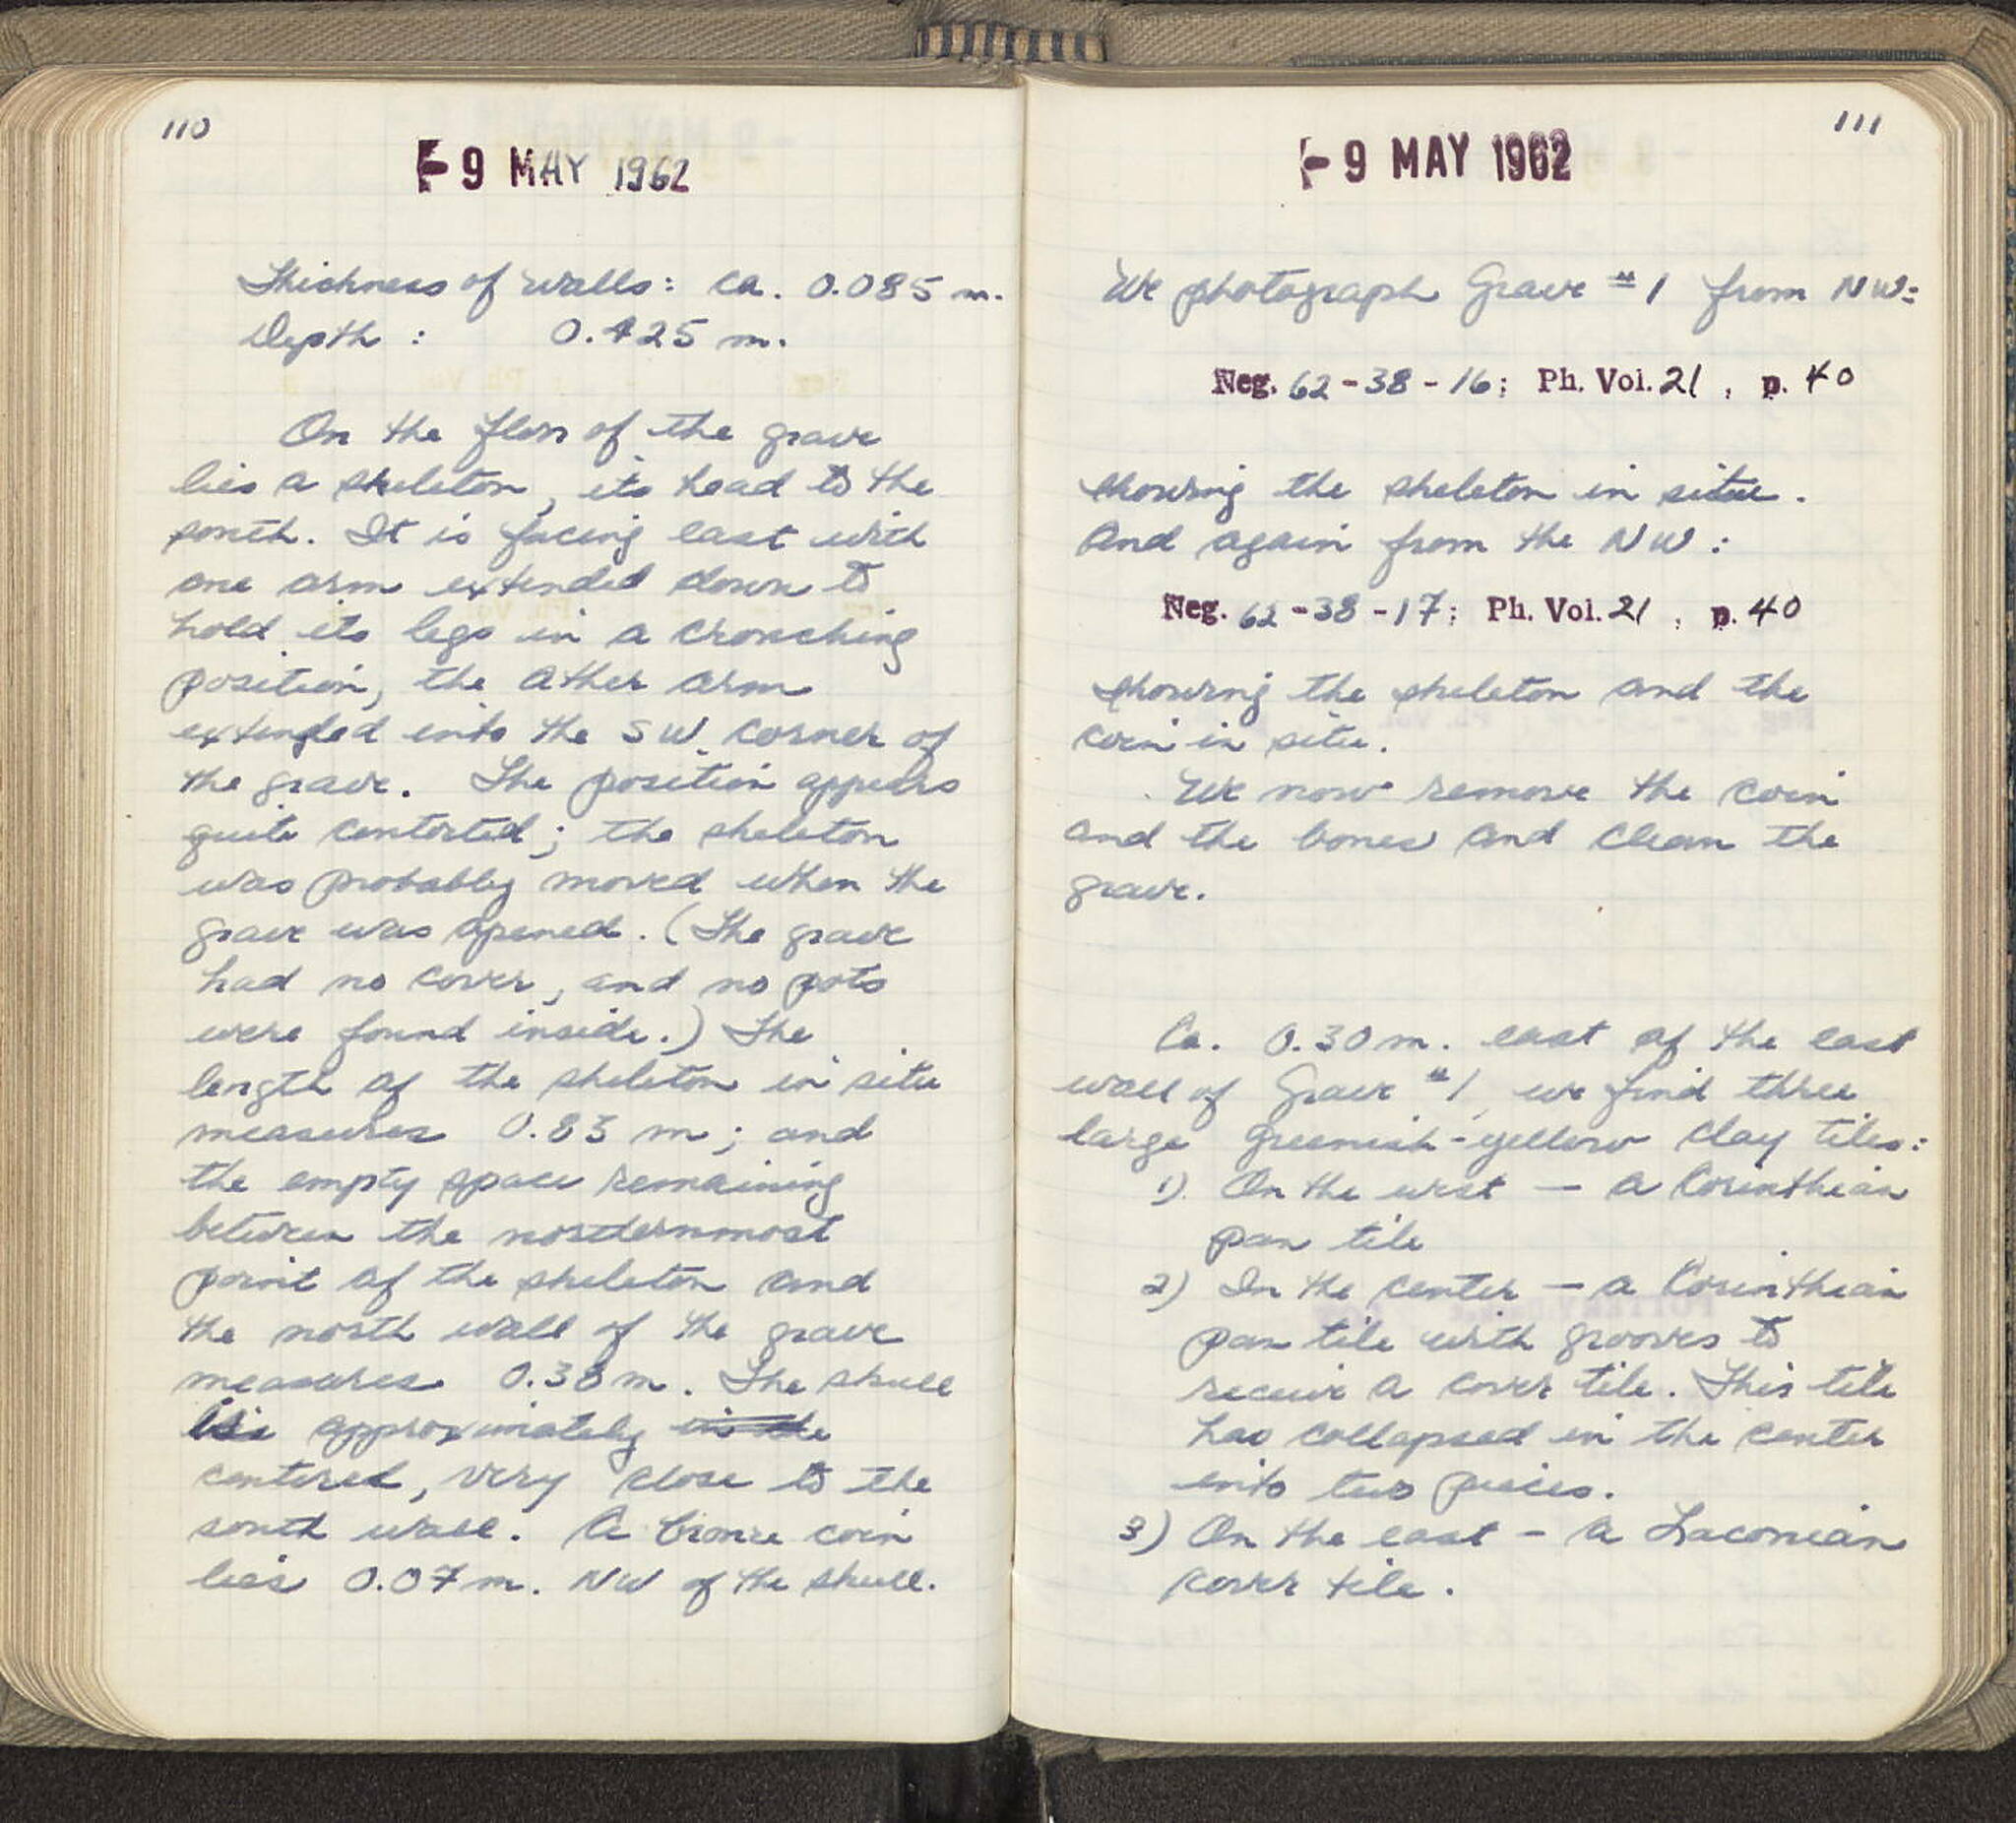 110
- 9 MAY 1962
Thickness of walls: ca. 0.085 m.
Depth: 0.425 m.
On the floor of the grave
lies a skeleton, its head to the
south. It is facing east with
one arm extended down to
hold its legs in a crouching
position, the other arm
extended into the SW corner of
the grave. The position appears
quite contorted; the skeleton
was probably moved when the
grave was opened. (The grave
had no cover, and no pots
were found inside.) The
length of the skeleton in situ
measures 0.83 m; and
the empty space remaining
between the northernmost
point of the skeleton and
the north wall of the grave
measures 0.38 m. The skull
lies approximately in the
centered, very close to the
south wall. A bronze coin
lies 0.07 m. NW of the skull.
111
- 9 MAY 1962
We photograph Grave #1 from NW:
Neg. 62-38-16; Ph. Vol. 21, p. 40
showing the skeleton in situ.
And again from the NW:
Neg. 62-38-17; Ph. Vol. 21, p. 40
showing the skeleton and the
coin in situ.
We now remove the coin
and the bones and clean the
grave.
Ca. 0.30 m. east of the east
wall of Grave #1, we find three
large greenish-yellow clay tiles:
1) On the west — a Corinthian
pan tile
2) In the center — a Corinthian
pan tile with grooves to
receive a cover tile. This tile
has collapsed in the center
into two pieces.
3) On the east — a Laconian
cover tile.